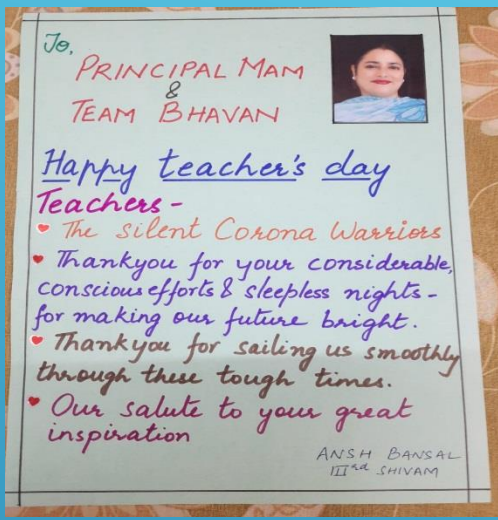 To,
PRINCIPAL MAM
&
TEAM BHAVAN
Happy teacher's day
Teachers -
The silent Corona Warriors
Thankyou for your considerable,
conscious efforts & sleepless nights -
for making our future bright.
Thankyou for sailing us smoothly
through these tough times.
Our salute to your great
inspiration
ANSH BANSAL
IIIrd SHIVAM